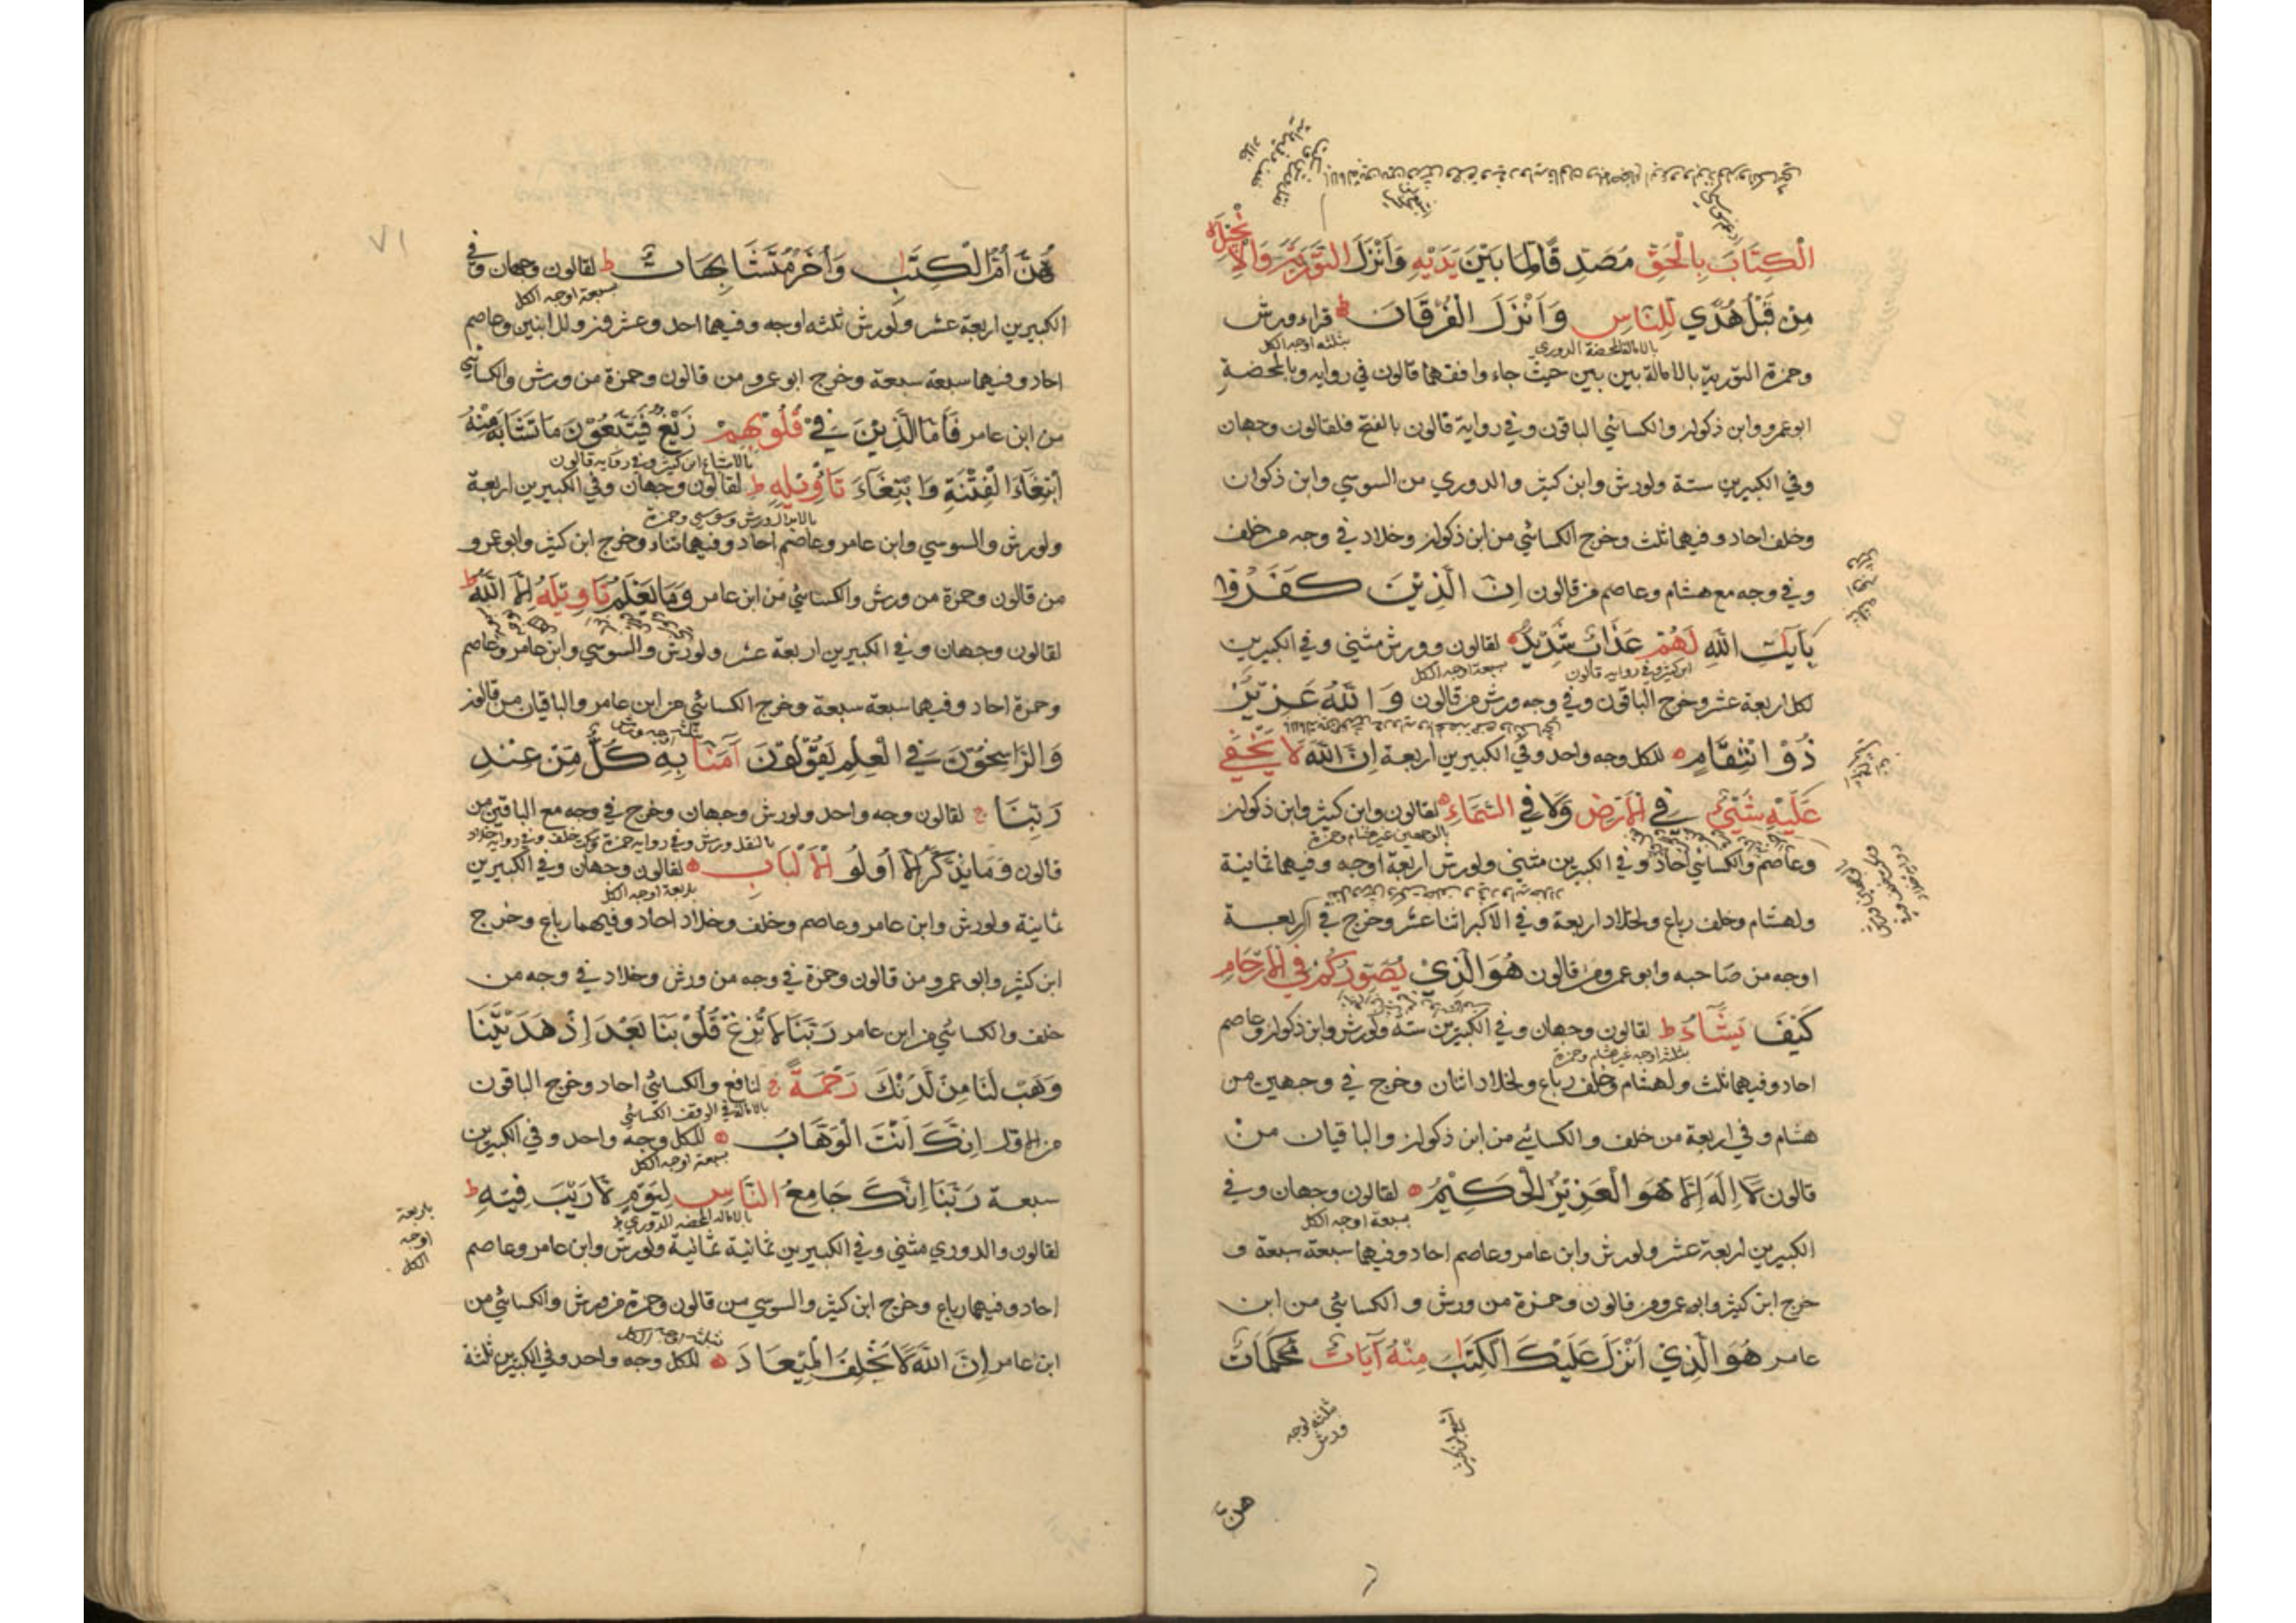 الْكِتَابَ بِالْحَقِّ مُصَدِّقًا لِمَا بَيْنَ يَدَيْهِ وَأَنْزَلَ التَّوْرٰيةَ وَالْاِنْجِيْلَ
مِنْ قَبْلُ هُدًى لِلنَّاسِ وَاَنْزَلَ الْفُرْقَانَ ط قراء ورش
بالامالة المحضة الدوري بثلثة اوجه الكل
وحمزة التورية بالامالة بين بين حيث جاء وافقهما قالون في رواية وبالمحضة
ابو عمرو وابن ذكوان والكسائي الباقون وفي رواية قالون بالفتح فلقالون وجهان
وفي الكبيرين ستة ولورش وابن كثير والدوري من السوسي وابن ذكوان
وخلف احاد وفيهما ثلث وخرج الكسائي من ابن ذكوان وخلاد في وجه من خلف
وفي وجه مع هشام وعاصم من قالون اِنَّ الَّذِيْنَ كَفَرُوْا
بِاٰيٰتِ اللّٰهِ لَهُمْ عَذَابٌ شَدِيْدٌ لقالون وورش مثنى وفي الكبيرين
ابن كثير وفي رواية قالون بسبعة اوجه الكل
لكل اربعة عشر وخرج الباقون وفي وجه ورش من قالون وَاللّٰهُ عَزِيْزٌ
ذُوْ انْتِقَامٍ للكل وجه واحد وفي الكبيرين اربعة اِنَّ اللّٰهَ لَا يَخْفٰى
عَلَيْهِ شَيْئٌ فِي الْاَرْضِ وَلَا فِي السَّمَاءِ لقالون وابن كثير وابن ذكوان
وعاصم والكسائي احاد وفي الكبيرين مثنى ولورش اربعة اوجه وفيهما ثمانية
ولهشام وخلف رباع ولخلاد اربعة وفي الاكبر اثنا عشر وخرج في اربعة
اوجه من صاحبه وابو عمرو من قالون هُوَ الَّذِيْ يُصَوِّرُكُمْ فِي الْاَرْحَامِ
كَيْفَ يَشَآءُ ط لقالون وجهان وفي الكبيرين ستة ولورش وابن ذكوان وعاصم
بثلثة اوجه غير هشام وحمزة
احاد وفيهما ثلث ولهشام وخلف رباع ولخلاد اثنان وخرج في وجهين من
هشام وفي اربعة من خلف والكسائي من ابن ذكوان والباقيان من
قالون لَا اِلٰهَ اِلَّا هُوَ الْعَزِيْزُ الْحَكِيْمُ لقالون وجهان وفي
بسبعة اوجه الكل
الكبيرين اربعة عشر ولورش وابن عامر وعاصم احاد وفيهما سبعة سبعة و
خرج ابن كثير وابو عمرو من قالون وحمزة من ورش والكسائي من ابن
عامر هُوَ الَّذِيْ اَنْزَلَ عَلَيْكَ الْكِتٰبَ مِنْهُ آيَاتٌ مُحْكَمَاتٌ
ثلثة اوجه
ورش
هنّ
٧١
هُنَّ اُمُّ الْكِتٰبِ وَأُخَرُ مُتَشَابِهَاتٌ ط لقالون وجهان وفي
بسبعة اوجه الكل
الكبيرين اربعة عشر ولورش ثلثة اوجه وفيهما احد وعشرون وللابنين وعاصم
احاد وفيهما سبعة سبعة وخرج ابو عمرو من قالون وحمزة من ورش والكسائي
من ابن عامر فَاَمَّا الَّذِيْنَ فِيْ قُلُوْبِهِمْ زَيْغٌ فَيَتَّبِعُوْنَ مَا تَشَابَهَ مِنْهُ
بالاشباع ابن كثير وفي رواية قالون
ابْتِغَآءَ الْفِتْنَةِ وَابْتِغَآءَ تَاْوِيْلِهٖ ط لقالون وجهان وفي الكبيرين اربعة
بالابدال ورش وسوسي وحمزة
ولورش والسوسي وابن عامر وعاصم احاد وفيهما ثناء وخرج ابن كثير وابو عمرو
من قالون وحمزة من ورش والكسائي من ابن عامر وَمَا يَعْلَمُ تَاْوِيْلَهٗ اِلَّا اللّٰهُ ط
لقالون وجهان وفي الكبيرين اربعة عشر ولورش والسوسي وابن عامر وعاصم
وحمزة احاد وفيهما سبعة سبعة وخرج الكسائي من ابن عامر والباقيان من قالون
وَالرَّاسِخُوْنَ فِي الْعِلْمِ يَقُوْلُوْنَ آمَنَّا بِهٖ كُلٌّ مِّنْ عِنْدِ
رَبِّنَا ج لقالون وجه واحد ولورش وجهان وخرج في وجه مع الباقين من
بالنقل ورش وفي رواية حمزة وسكت خلف وفي رواية خلاد
قالون وَمَا يَذَّكَّرُ اِلَّا اُولُو الْاَلْبَابِ لقالون وجهان وفي الكبيرين
باربعة اوجه الكل
ثمانية ولورش وابن عامر وعاصم وخلف وخلاد احاد وفيهما رباع وخرج
ابن كثير وابو عمرو من قالون وحمزة في وجه من ورش وخلاد في وجه من
خلف والكسائي من ابن عامر رَبَّنَا لَا تُزِغْ قُلُوْبَنَا بَعْدَ اِذْ هَدَيْتَنَا
وَهَبْ لَنَا مِنْ لَّدُنْكَ رَحْمَةً ج لنافع والكسائي احاد وخرج الباقون
بالامالة في الوقف الكسائي
من الاول اِنَّكَ اَنْتَ الْوَهَّابُ للكل وجه واحد وفي الكبيرين
بسبعة اوجه الكل
سبعة رَبَّنَا اِنَّكَ جَامِعُ النَّاسِ لِيَوْمٍ لَّا رَيْبَ فِيْهِ ط
بالامالة المحضة الدوري
باربعة
اوجه
الكل
لقالون والدوري مثنى وفي الكبيرين ثمانية ثمانية ولورش وابن عامر وعاصم
احاد وفيهما رباع وخرج ابن كثير والسوسي من قالون وحمزة من ورش والكسائي من
بثلثة اوجه الكل
ابن عامر اِنَّ اللّٰهَ لَا يُخْلِفُ الْمِيْعَادَ للكل وجه واحد وفي الكبيرين ثلثة